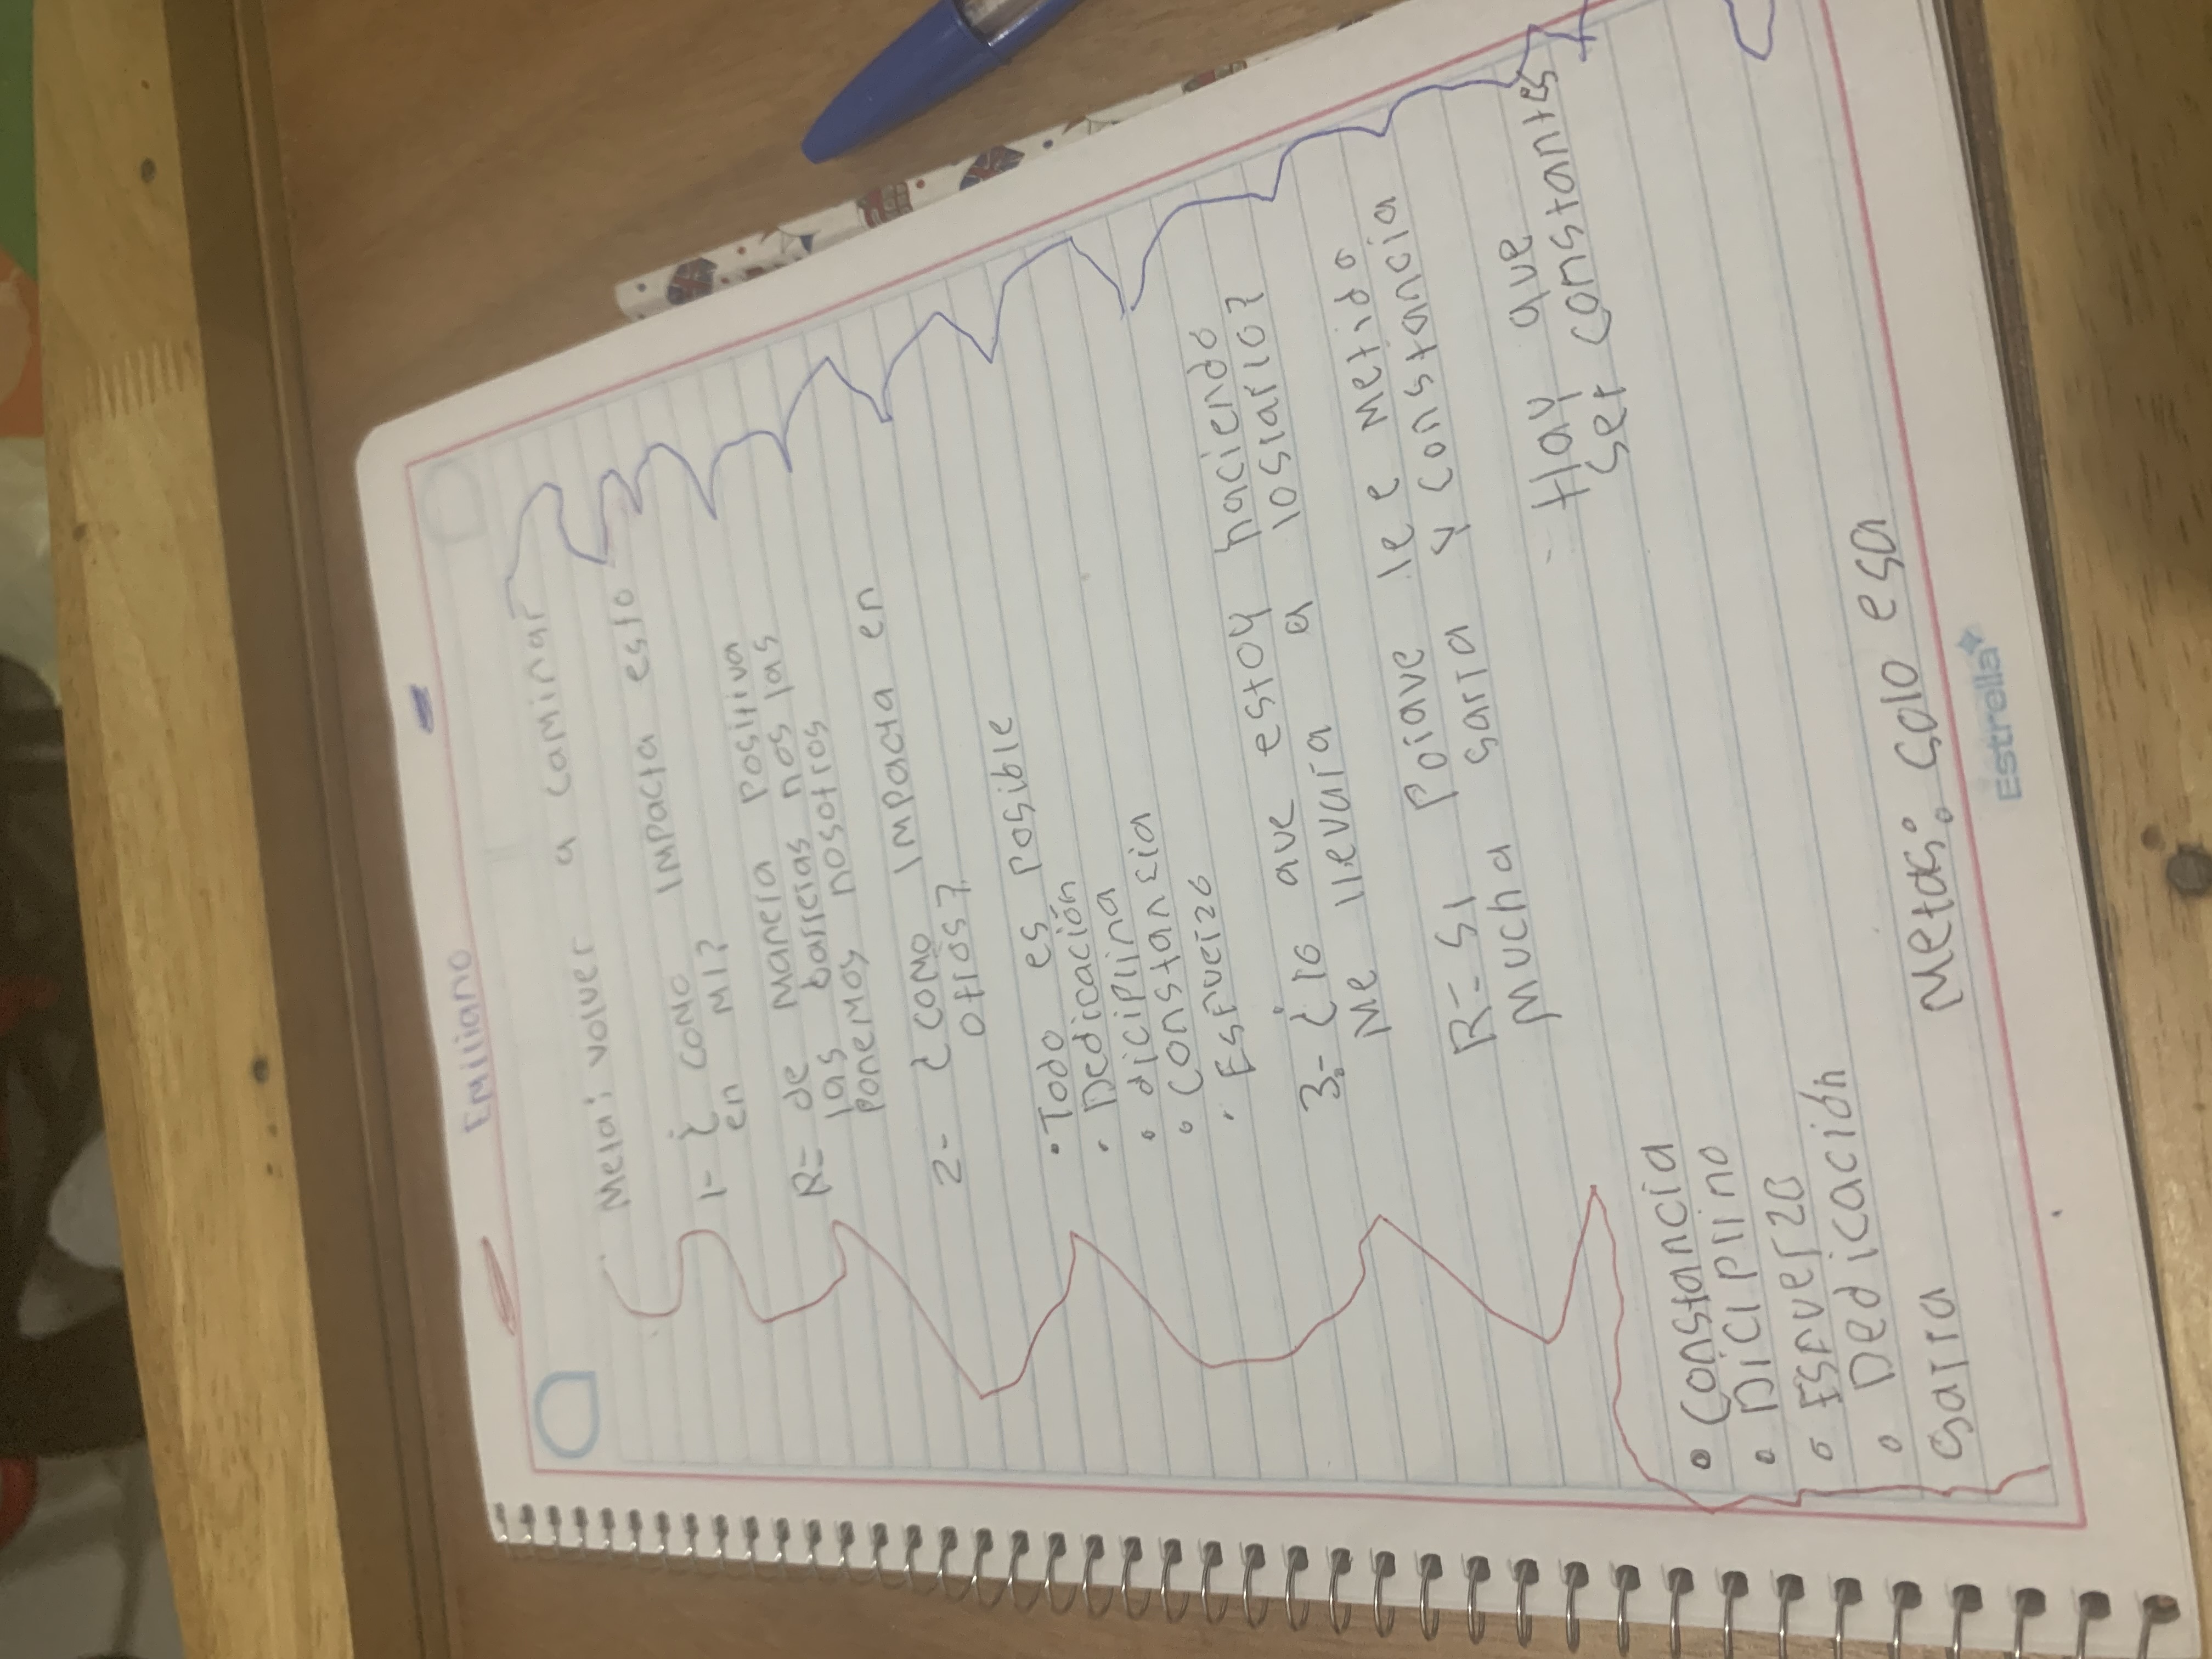 Emiliano
Meta: volver a caminar
1- ¿Como impacta esto
en mi?
R= de manera positiva
las barreras nos las
ponemos nosotros
2- ¿Como impacta en
otros?
• Todo es posible
• Dedicación
• diciplina
• Constancia
• Esfuerzo
3.- ¿lo que estoy haciendo
me llevaria a lograrlo?
R= si Porque le e metido
mucha garra y constancia
- Hay que
ser constantes
• Constancia
• Diciplino
• Esfuerzo
• Dedicación
Garra
Metas: solo esa
Estrella